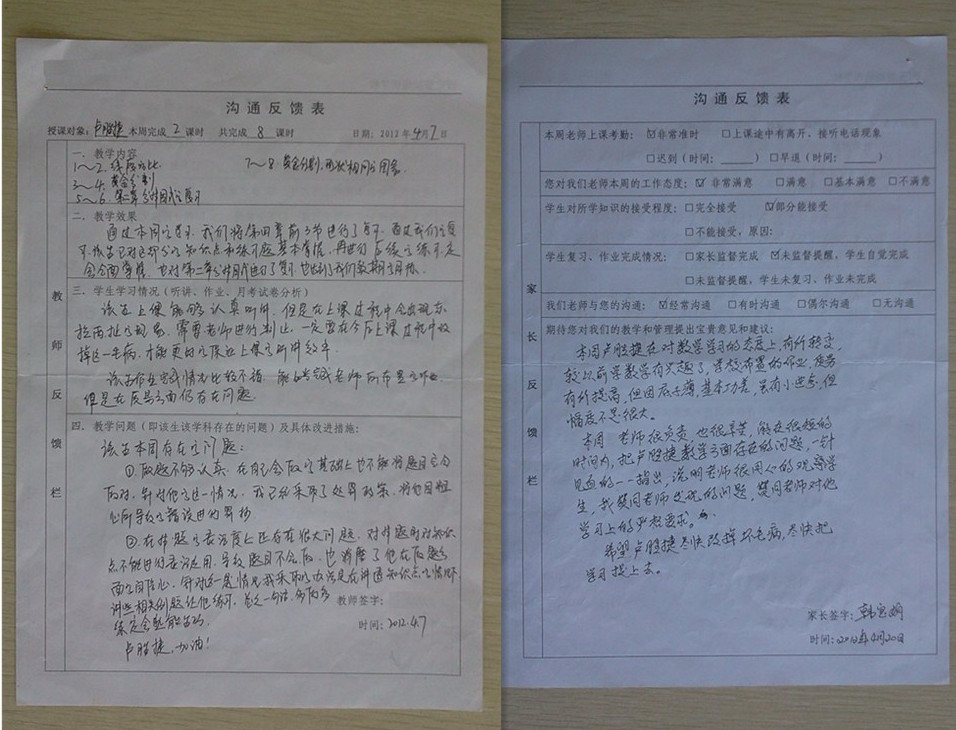 沟通反馈表
授课对象：卢胜捷 本周完成 2 课时 共完成 8 课时 日期：2012 年 4 月 7 日
教师反馈栏
一、教学内容
1~2. 线段的比 7~8. 黄金分割，形状相同的图形
3~4. 黄金分割
5~6. 第二章分解因式的复习
二、教学效果
通过本周的学习，我们将第四章前3节进行了复习，通过我们的复
习，该生已对这部分的知识点和练习题基本掌握，再进行后续的练习定
会全面掌握。也对第二章分解因式进行了复习
三、学生学习情况（听讲、作业、月考试卷分析）
该生上课能够认真听讲，但是在上课过程中会出现东
拉西扯的现象，需要老师进行制止，一定要在今后上课过程中改
掉这一毛病，才能更好的保证上课的听讲效率。
该生作业完成情况比较不错，能够完成老师所布置的作业，
但是在质量方面仍存在问题。
四、教学问题（即该生该学科存在的问题）及具体改进措施：
该生本周存在的问题：
① 做题不够认真，在自己会做的基础上也不能将题目完全
做对，针对他的这一情况，我已经采取了处罚政策，将他因粗
心所导致的错误进行罚抄
② 在解题的灵活度上还存在很大问题，对解题时对知识
点不能进行灵活运用，导致题目不会做，也消磨了他在做题方
面的自信心，针对这一类情况我采取的办法是在讲通知识点的情况下，
讲些相关例题给他练习，总之一句话，多
练定会熟能生巧
卢胜捷，加油！
教师签字：
时间：2012.4.7
沟通反馈表
家长反馈栏
本周老师上课考勤： ☑非常准时 □上课途中有离开、接听电话现象
□迟到（时间：____） □早退（时间：____）
您对我们老师本周的工作态度：☑ 非常满意 □满意 □基本满意 □不满意
学生对所学知识的接受程度：□完全接受 ☑部分能接受
□不能接受，原因：
学生复习、作业完成情况：□家长监督完成 ☑未监督提醒，学生自觉完成
□未监督提醒，学生未复习、作业未完成
我们老师与您的沟通：☑经常沟通 □有时沟通 □偶尔沟通 □无沟通
期待您对我们的教学和管理提出宝贵意见和建议：
本周卢胜捷在对数学学习的态度上，有所转变，
较以前学数学有兴趣了，学校布置的作业，质量
有所提高，但因底子薄，基本功差，虽有小进步，但
幅度不是很大。
本周 老师很负责 也很辛苦，能在很短的
时间内，把卢胜捷数学方面存在的问题，一针
见血的一一指出，说明老师很用心的观察学
生，我赞同老师发现的问题，赞同老师对他
学习上的严格要求。
希望卢胜捷尽快改掉坏毛病，尽快把
学习提上去。
家长签字：
时间：2012年4月20日